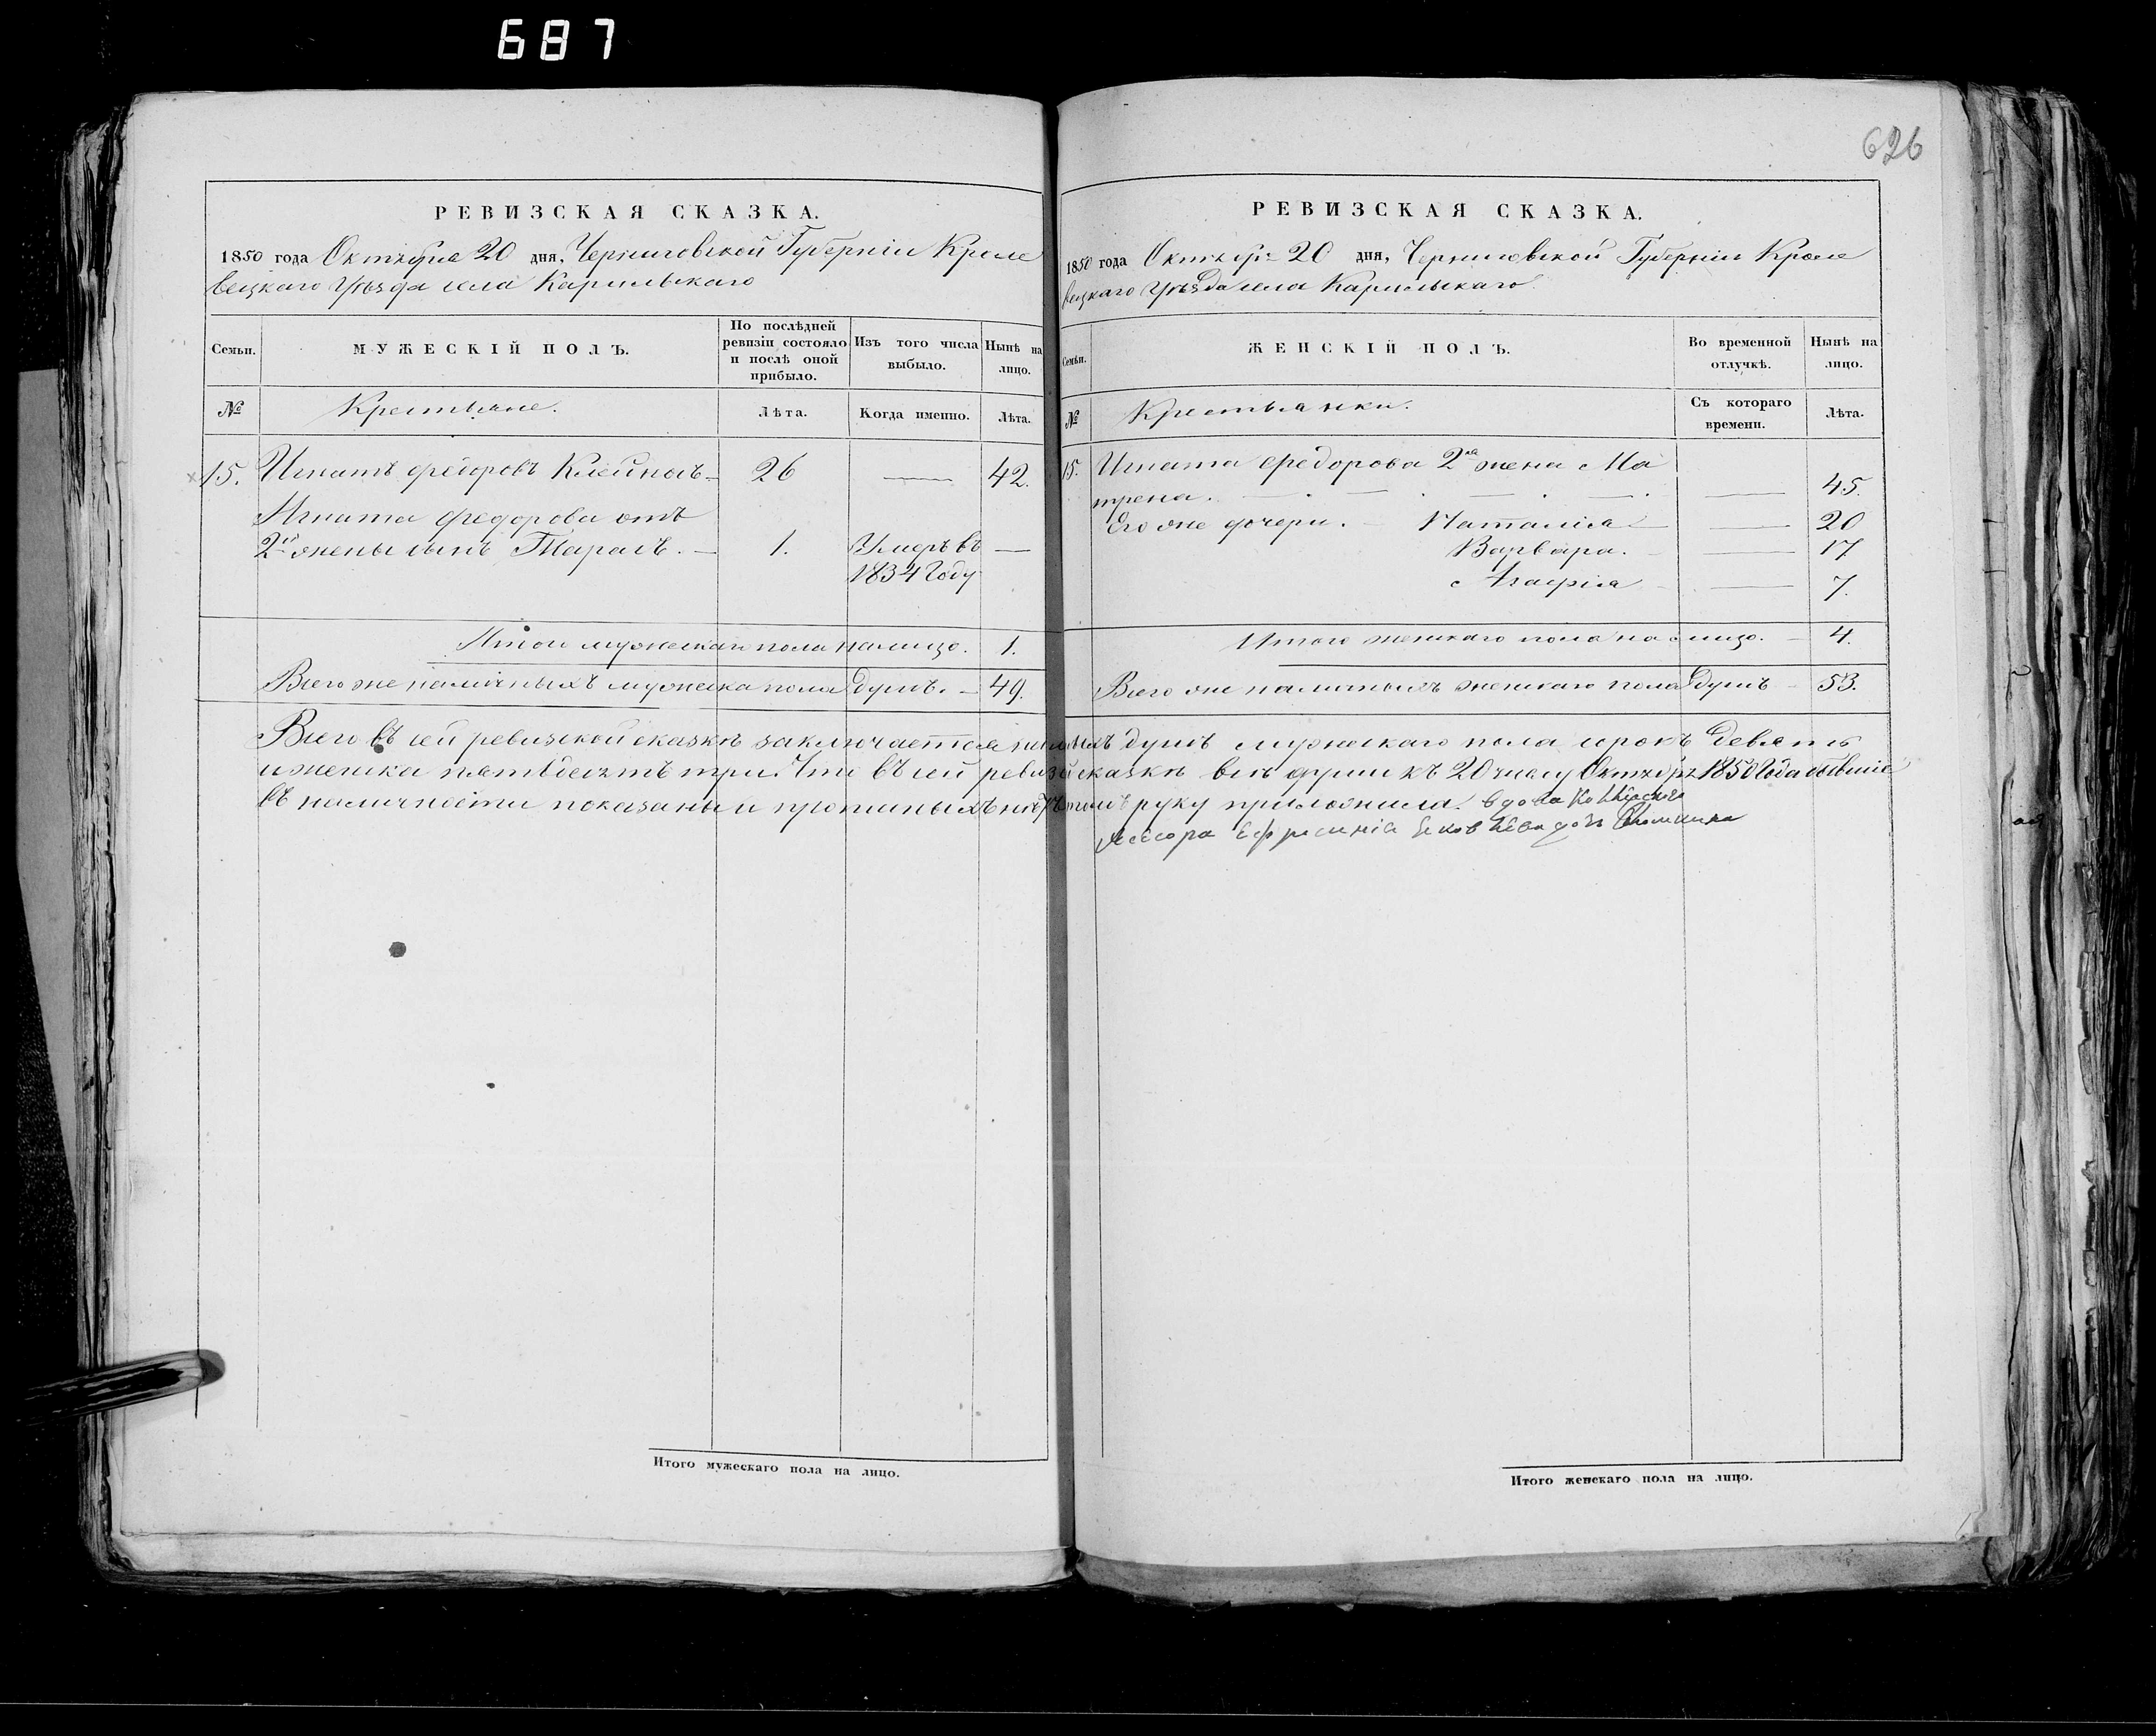 687
626
РЕВИЗСКАЯ СКАЗКА.
1850 года Октября 20 дня, Черниговской Губерніи Кроле
вецкаго Уѣзда села Карильскаго
Семьи.
МУЖЕСКІЙ ПОЛЪ.
По послѣдней
ревизіи состояло
и послѣ оной
прибыло.
Изъ того числа
выбыло.
Нынѣ на
лицо.
№
Крестьяне.
Лѣта.
Когда именно.
Лѣта.
15. Игнатъ Федоровъ 26 — 42.
Игната Федорова отъ
2й жены сынъ Тарасъ. — 1. Умеръ въ —
1834 Году
Итого мужескаго пола налицо. 1.
Всего же наличныхъ мужеска пола душъ. — 49.
РЕВИЗСКАЯ СКАЗКА.
1850 года Октября 20 дня, Черниговской Губерніи Кроле
вецкаго Уѣзда села Карильскаго
Семьи.
ЖЕНСКІЙ ПОЛЪ.
Во временной
отлучкѣ.
Нынѣ на
лицо.
№
Крестьянки.
Съ котораго
времени.
Лѣта.
15. Игната Федорова 2я жена Ма
трена. — 45.
Его же дочери. — Наталія — 20
Варвара. — 17
Агафія — 7.
Итого женскаго пола на лицо. — 4.
Всего же наличныхъ женскаго пола душъ — 53.
Всего въ сей ревизской сказкѣ заключается душъ мужескаго пола сорокъ девять
и женска пятьдесятъ три. Что въ сей сказкѣ всѣ души къ 20 числу Октября 1850 Года
въ наличности показаны и руку приложила вдова
Асесора Ефросинія
Итого мужескаго пола на лицо.
Итого женскаго пола на лицо.